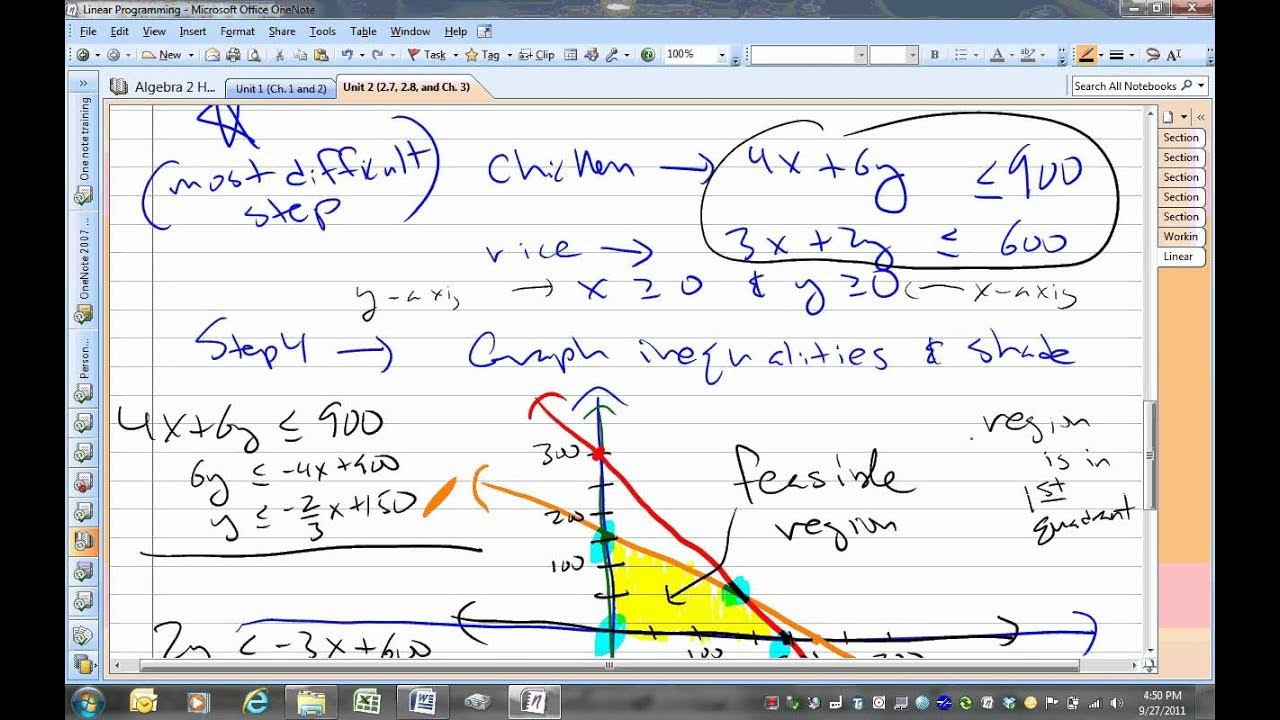 Linear Programming - Microsoft Office OneNote
File Edit View Insert Format Share Tools Table Window Help
New Task Tag Clip 100% B A
Algebra 2 H... Unit 1 (Ch. 1 and 2) Unit 2 (2.7, 2.8, and Ch. 3) Search All Notebooks
One note training
OneNote 2007 ...
Person...
Section
Section
Section
Section
Section
Workin
Linear
(most difficult step)
Chicken → 4x + 6y ≤ 900
rice → 3x + 2y ≤ 600
y-axis → x ≥ 0 & y ≥ 0 ← x-axis
Step 4 → Graph inequalities & shade
4x+6y ≤ 900
6y ≤ -4x+900
y ≤ -2/3x+150
300
200
100
feasible
region
region
is in
1st
quadrant
2y ≤ -3x+600
100
4:50 PM
9/27/2011